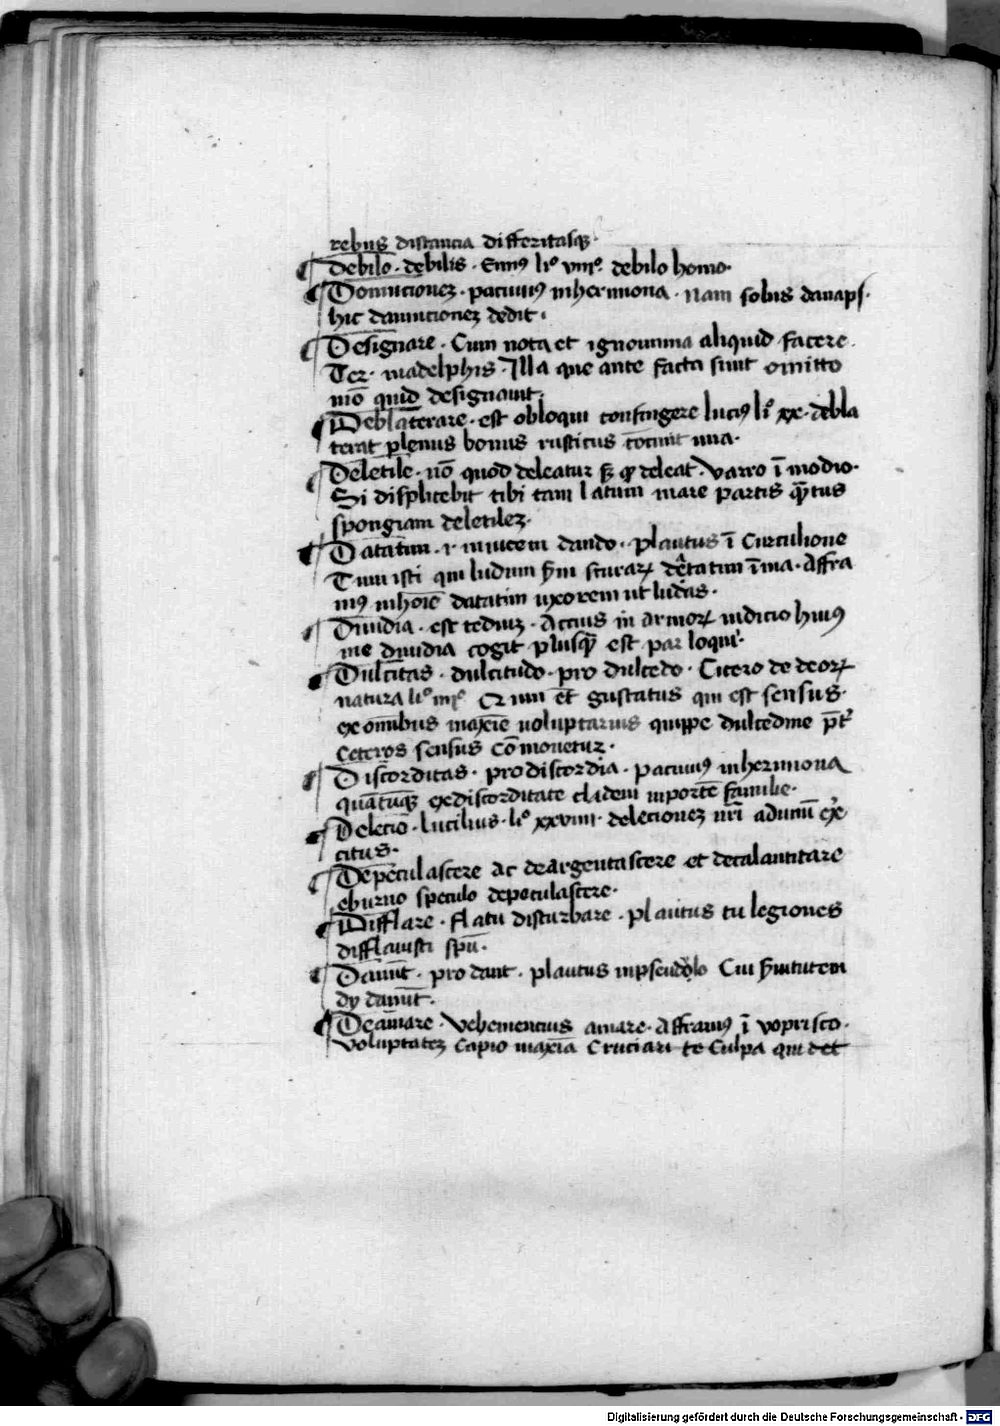 rebus distancia differitasqꝫ.
Debilo. debilis. Enniꝰ liº viiiº. debilo homo.
Domitionem. pacuuiꝰ in hermiona. nam solus danaps.
hic dominionem dedit.
Designare. Cum nota et ignominia aliquid facere.
Ter. in adelphis. Illa que ante facta sunt omitto
mō quid designauit.
Deblaterare. est obloqui confingere luciꝰ li° xx. debla
terat plenus bonus rusticus
Deletile. nō quod deleatur sꝫ qꝫ deleat. Varro ī modio.
Si displicebit tibi tam latum mare partis
spongiam deletilem.
Datatim. i inuicem dando. plautus ī Curculione
Tum isti qui ludum datatim ī via. Affra
niꝰ datatim uxorem ut ludas.
Diuidia. est tedium. Accius in armoꝝ iudicio huiꝰ
me diuidia cogit plusqꝫ est par loqui.
Dulcitas. dulcitudo. pro dulcedo. Cicero de deoꝝ
natura liº iiiº et gustatus qui est sensus.
ex omnibus maxīe uoluptarius quippe dulcedine
Ceteros sensus cōmouetur.
Discorditas. pro discordia. pacuuiꝰ in hermiona
exdiscorditate cladem inportē familie.
Delecio. lucilius. liº xxviiii. delecionem nrī
citus.
Depeculascere ac deargentascere et decalantitare
eburno speculo depeculascere.
Difflare. flatu disturbare. plautus tu legiones
difflauisti spū.
Danunt. pro dant. plautus in pseudolo Cui
dy danūt.
Deamare. Vehementius amare. affraniꝰ ī vopisco.
Voluptatem capio maxīa Cruciari te Culpa qui det
Digitalisierung gefördert durch die Deutsche Forschungsgemeinschaft - DFG